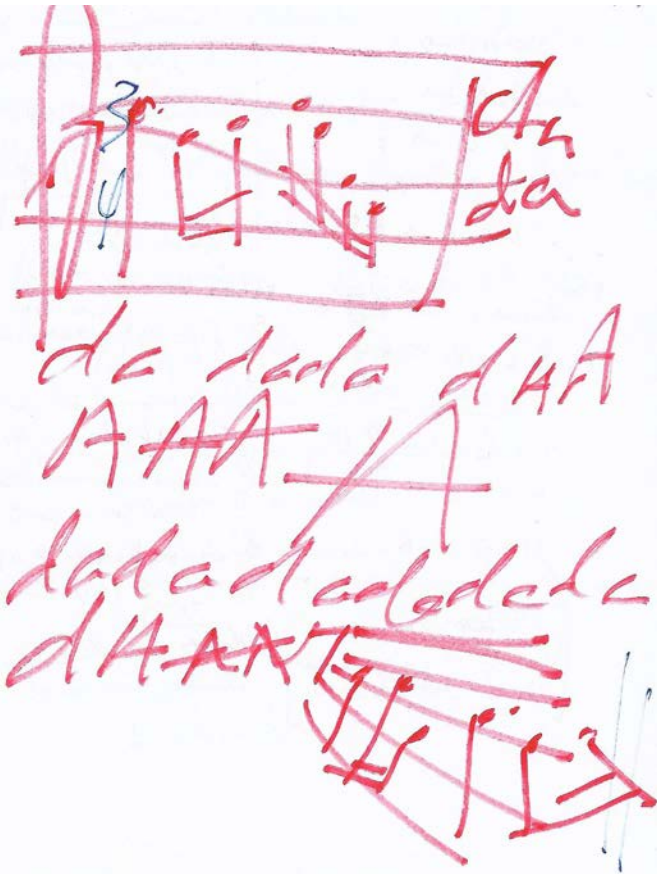 3
4
da
da
da dada dHAA
AAAA
dadadadadadada
dHAAA